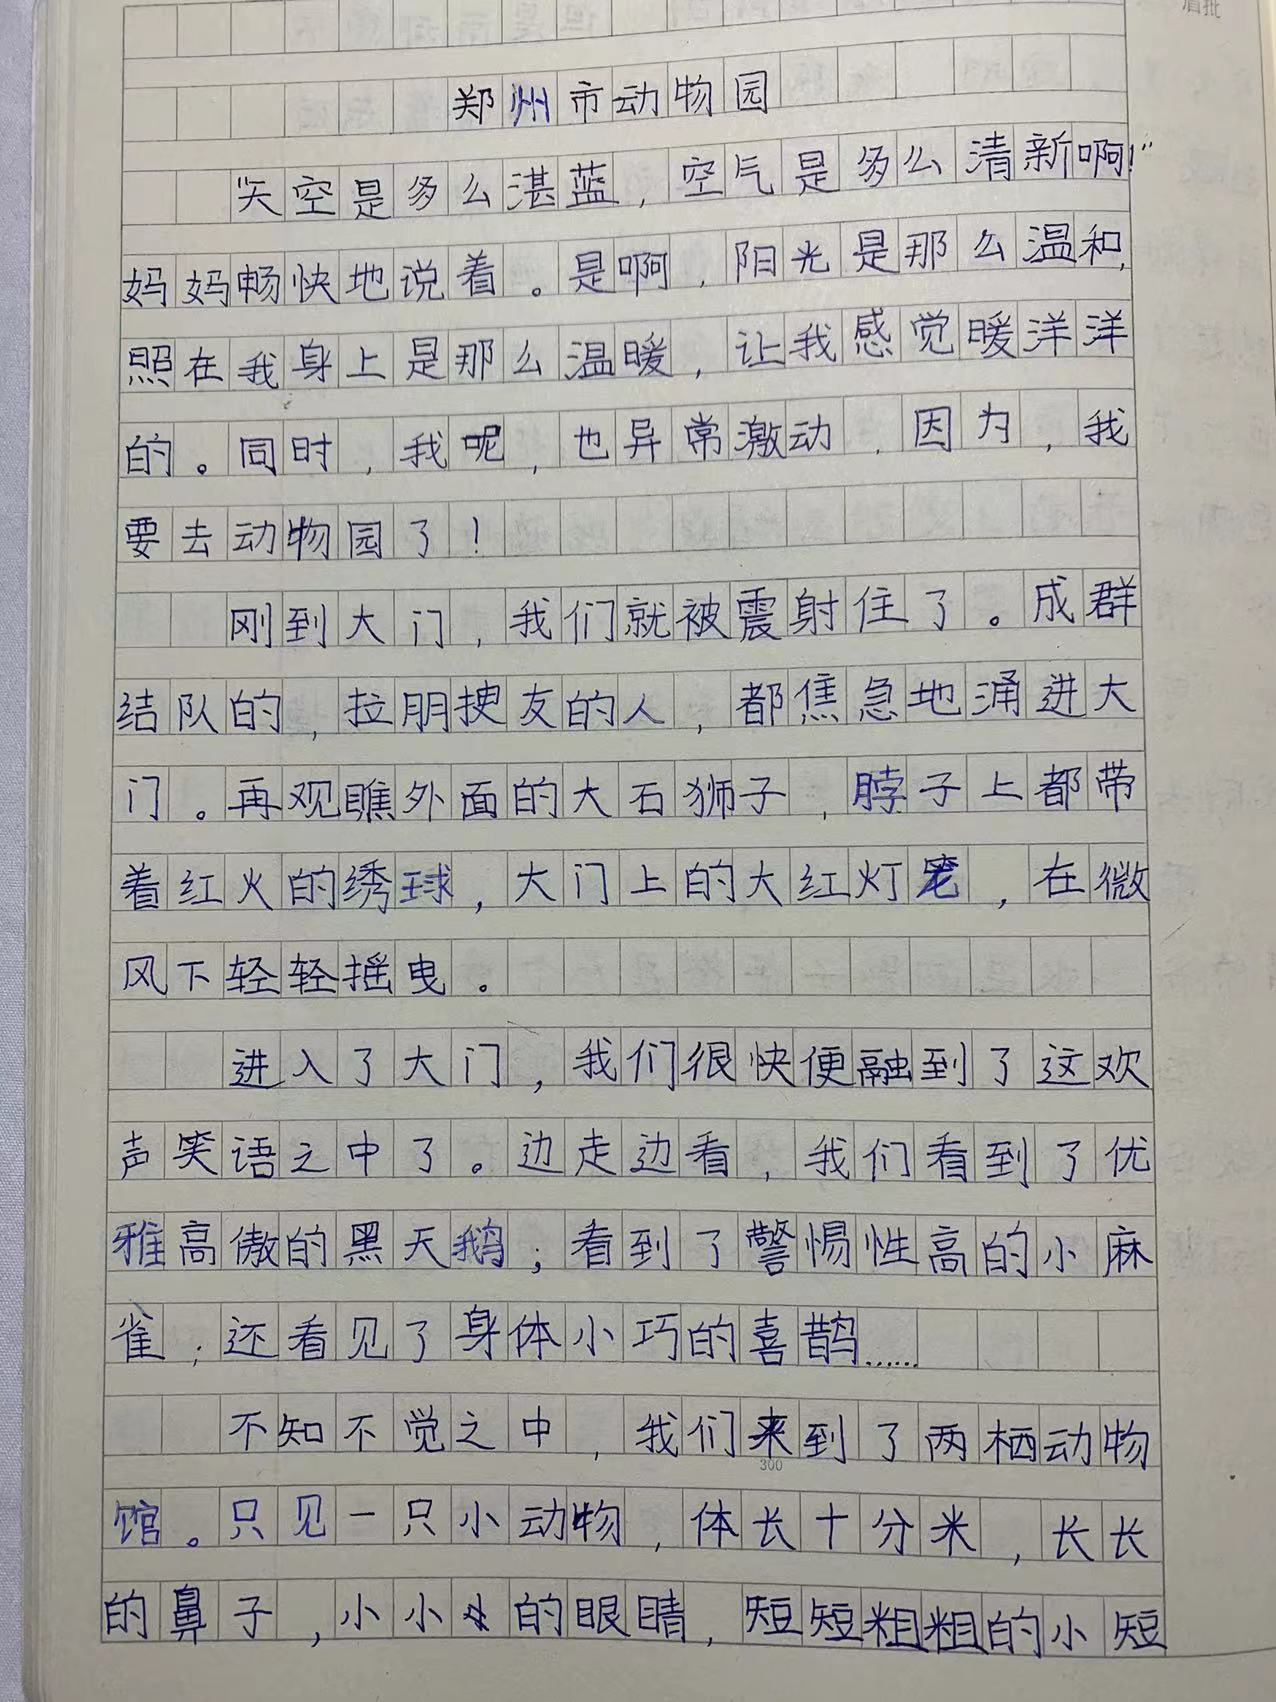 眉批
郑州市动物园
“天空是多么湛蓝，空气是多么清新啊！”
妈妈畅快地说着。是啊，阳光是那么温和，
照在我身上是那么温暖，让我感觉暖洋洋
的。同时，我呢，也异常激动，因为，我
要去动物园了！
刚到大门，我们就被震射住了。成群
结队的，拉朋拽友的人，都焦急地涌进大
门。再观瞧外面的大石狮子，脖子上都带
着红火的绣球，大门上的大红灯笼，在微
风下轻轻摇曳。
进入了大门，我们很快便融到了这欢
声笑语之中了。边走边看，我们看到了优
雅高傲的黑天鹅；看到了警惕性高的小麻
雀；还看见了身体小巧的喜鹊……
不知不觉之中，我们来到了两栖动物
300
馆。只见一只小动物，体长十分米，长长
的鼻子，小小的眼睛，短短粗粗的小短